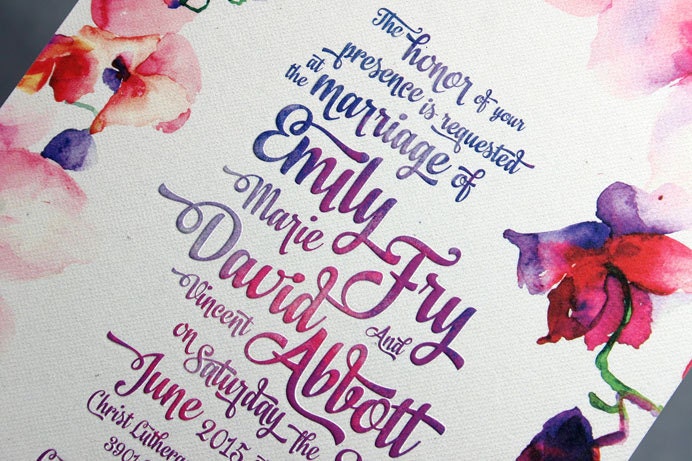 The honor of your
presence is requested
at the marriage of
Emily Fry
Marie
And
David Abbott
Vincent
on Saturday the
June 2015
Christ Luthera
3901